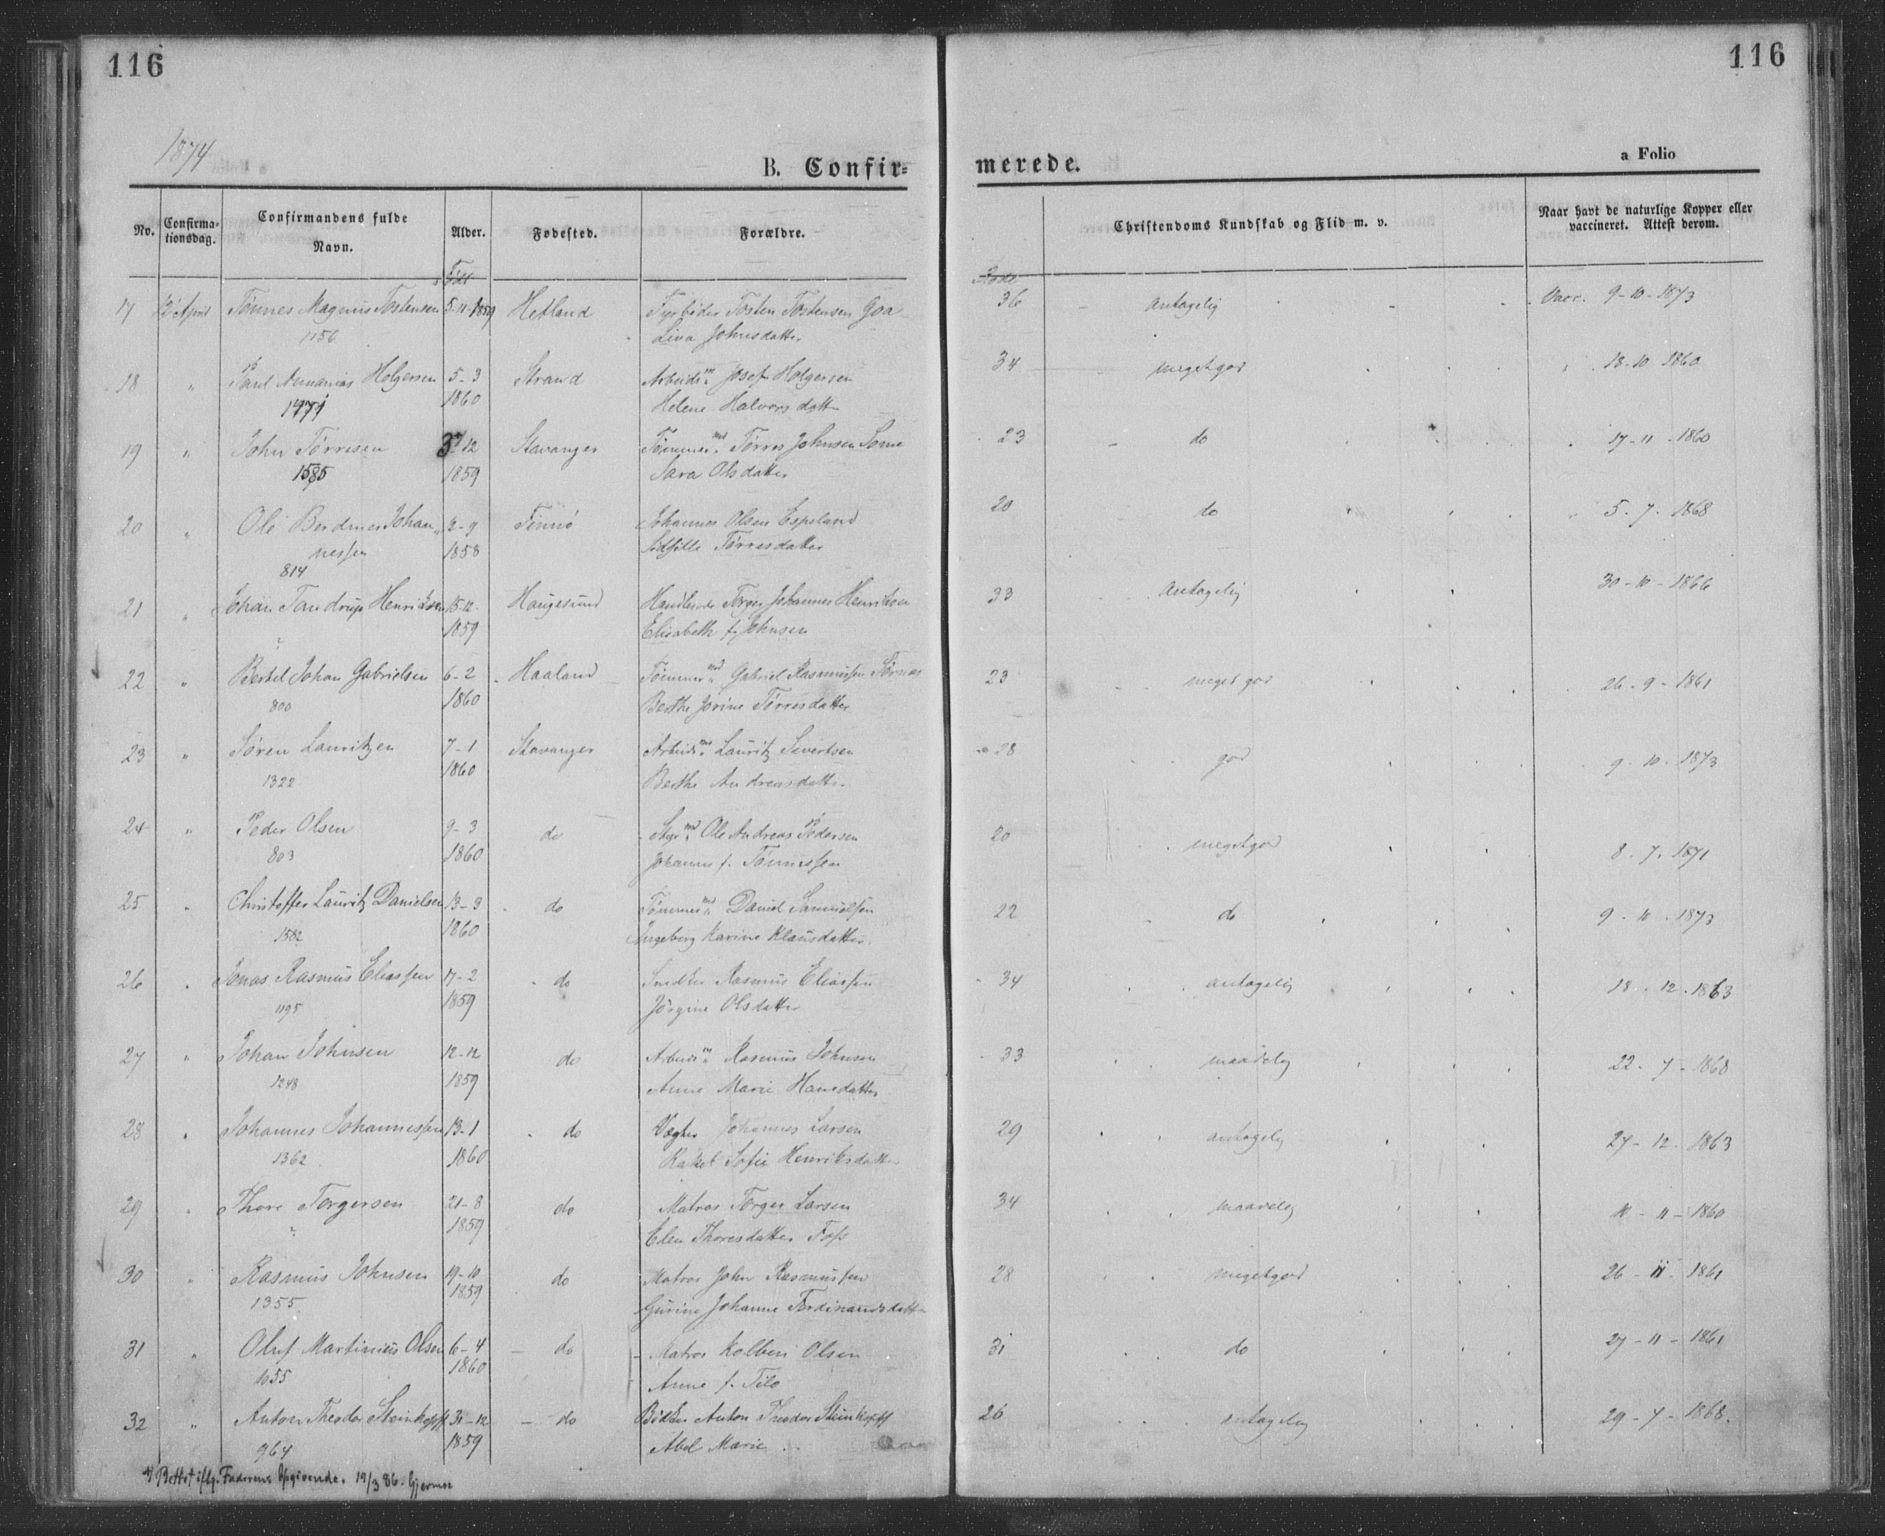 116
116
1874
B. Confir-
merede.
a Folio
No.
Confirma-
tionsdag.
Confirmandens fulde
Navn.
Alder.
Fødested.
Forældre.
Christendoms Kundskab og Flid m. v.
Naar havt de naturlige Kopper eller
vaccineret. Attest derom.
Født
17 12 April Tønnes Magnus Tostensen 5-11-1859 Hetland Fyrbøder Tosten Tostensen Goa 36 antagelig Vacc. 9-10-1873
1156 Lina Johnsdatter
18 " Paul Ananias Holgersen 5-3 Strand Arbeidsm Josef Holgersen 34 megetgod 18-10-1860
1860 Helene Halvorsdatter
19 " John Tørresen 12 Stavanger Tømmermd Tørres Johnsen Søme 23 do 17-11-1860
1585 1859 Sara Olsdatter
20 " Ole Johan- 2-9 Finnø Johannes Olsen Espeland 20 do 5-7-1868
nessen 1858 Tørresdatter
814
21 " Johan Tandrup Henriksen 15-12- Haugesund Handlende Torger Johannes Henriksen 33 antagelig 30-10-1866
" 1859 Elisabeth f. Johnsen
22 " Bertel Johan Gabrielsen 6-2 Haaland Tømmermd Gabriel Rasmussen 23 meget god 26-9-1861
800 1860 Berthe Jorine Tørresdatter
23 " Søren Lauritzen 7-1 Stavanger Arbeidsmd Lauritz Sivertsen 28 god 9-10-1873
1322 1860 Berthe Andreasdatter
24 " Peder Olsen 9-3 do Styrmd Ole Andreas Pedersen 20 megetgod 8-7-1871
803 1860 Johanne f. Tønnessen
25 " Christoffer Lauritz Danielsen 13-3 do Tømmermd Daniel Samuelsen 22 do 9-10-1873
1582 1860 Ingeborg Karine Klausdatter
26 " Jonas Rasmus Eliassen 17-2 do Snedker Rasmus Eliassen 34 antagelig 18-12-1863
1195 1859 Jørgine Olsdatter
27 " Johan Johnsen 12-12 do Arbeidsm Rasmus Johnsen 33 maadelig 22-7-1868
1248 1859 Anne Marie Hansdatter
28 " Johannes Johannessen 13-1 do Vægter Johannes Larsen 29 antagelig 27-12-1863
1362 1860 Rakel Sofie Henriksdatter
29 " Thore Torgersen 21-8 do Matros Torger Larsen 34 maadelig 11-11-1860
" 1859 Elen Thoresdatter Foss
30 " Rasmus Johnsen 19-10 do Matros John Rasmussen 28 megetgod 26-11-1861
1355 1859 Gurine Johanne Ferdinandsdatter
31 " Oluf Martinius Olsen 6-4 do Matros Kolben Olsen 31 do 27-11-1861
1055 1860 Anne f. Tilo
32 " Anton Theodor Steinkopff 31-12 do Bødker Anton Theodor Steinkopff 26 antagelig 29-7-1868
964 1859 Abel Marie
Rettet iflg. Faderens Opgivende. 19/3 86. Gjermoe